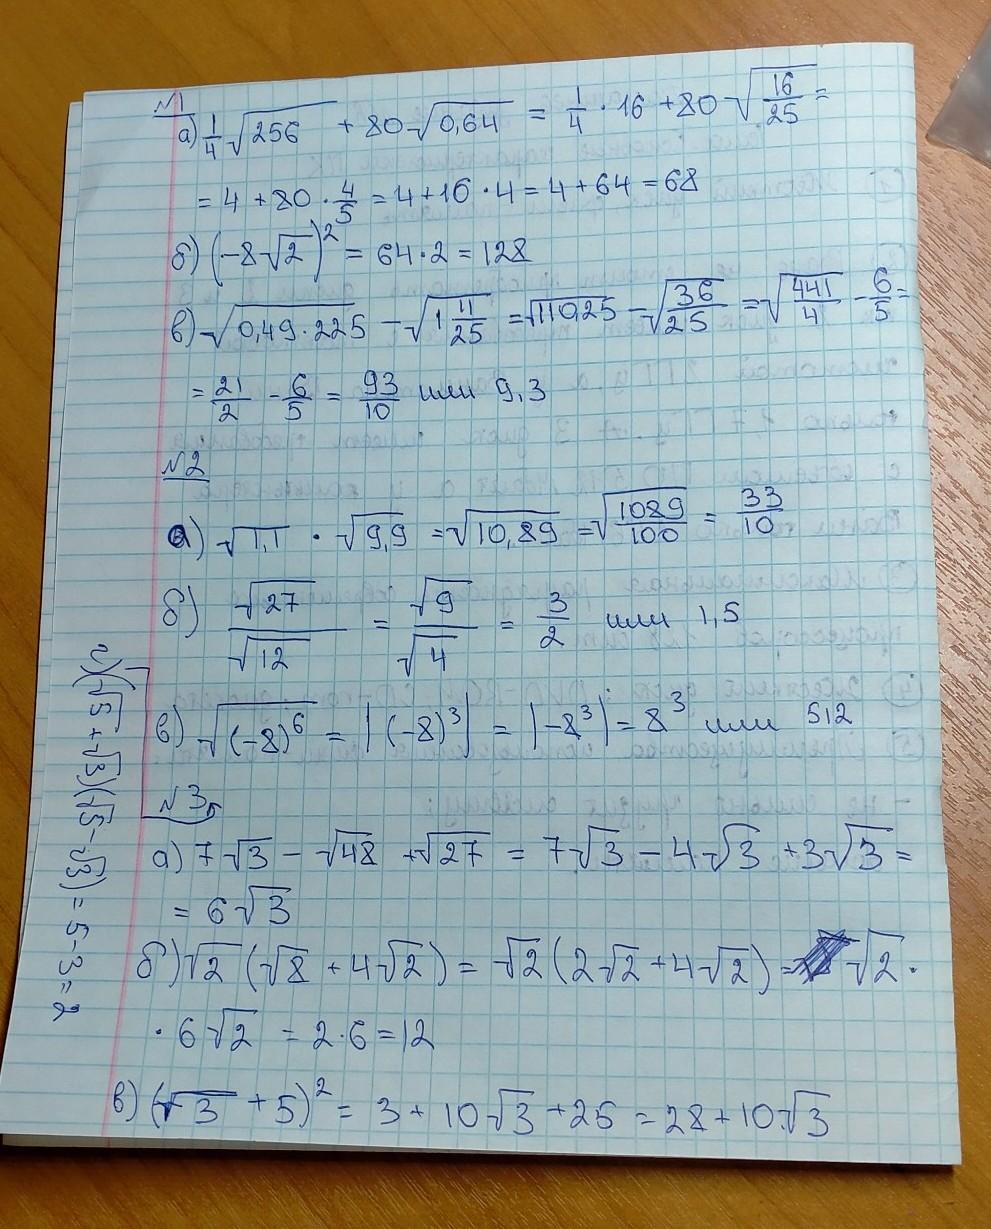 №1
а) 1/4 √256 + 80√0,64 = 1/4 · 16 + 80 √(16/25) =
= 4 + 80 · 4/5 = 4 + 16 · 4 = 4 + 64 = 68
б) (-8√2)² = 64·2 = 128
в) √(0,49·225) - √(1 11/25) = √110,25 - √(36/25) = √(441/4) - 6/5 =
= 21/2 - 6/5 = 93/10 или 9,3
№2
а) √1,1 · √9,9 = √10,89 = √(1089/100) = 33/10
б) √27/√12 = √9/√4 = 3/2 или 1,5
в) √((-8)⁶) = |(-8)³| = |-8³| = 8³ или 512
№3
а) 7√3 - √48 + √27 = 7√3 - 4√3 + 3√3 =
= 6√3
б) √2 (√8 + 4√2) = √2 (2√2 + 4√2) = √2 ·
· 6√2 = 2·6 = 12
в) (√3 + 5)² = 3 + 10√3 + 25 = 28 + 10√3
г) (√5 + √3)(√5 - √3) = 5 - 3 = 2